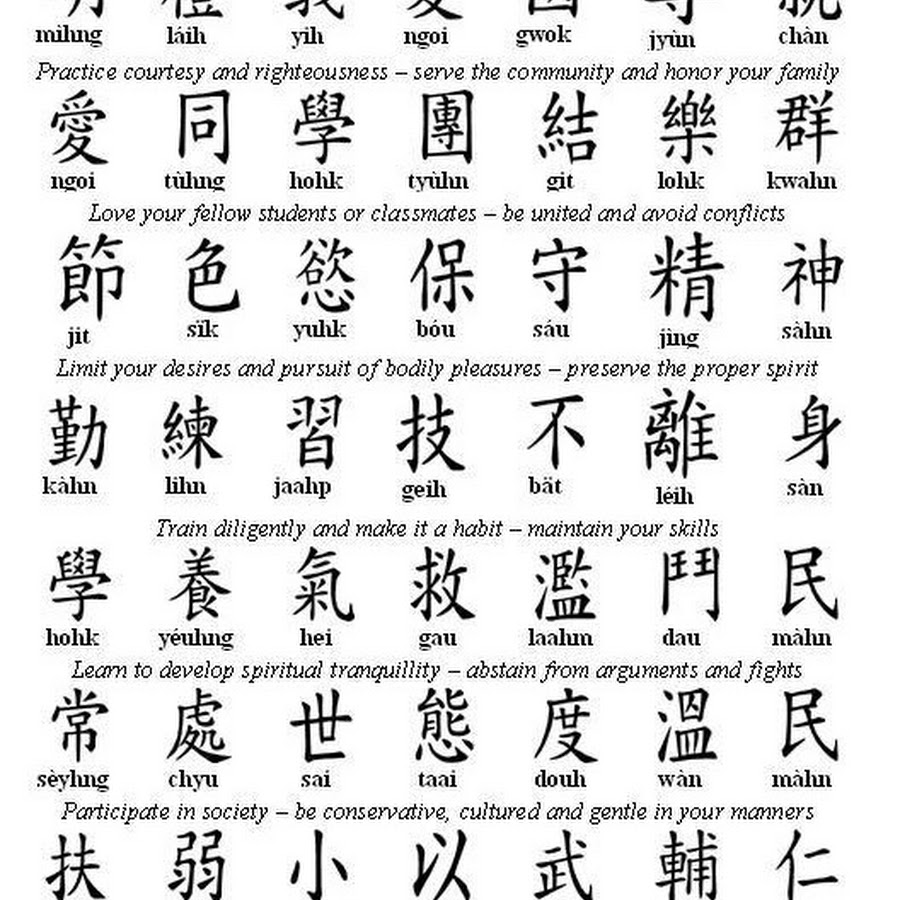 mihng láih yih ngoi gwok jyùn chàn
Practice courtesy and righteousness – serve the community and honor your family
愛 同 學 團 結 樂 群
ngoi tùhng hohk tyùhn git lohk kwahn
Love your fellow students or classmates – be united and avoid conflicts
節 色 慾 保 守 精 神
jit sïk yuhk bóu sáu jìng sàhn
Limit your desires and pursuit of bodily pleasures – preserve the proper spirit
勤 練 習 技 不 離 身
kàhn lihn jaahp geih bät léih sàn
Train diligently and make it a habit – maintain your skills
學 養 氣 救 濫 鬥 民
hohk yéuhng hei gau laahm dau màhn
Learn to develop spiritual tranquillity – abstain from arguments and fights
常 處 世 態 度 溫 民
sèyhng chyu sai taai douh wàn màhn
Participate in society – be conservative, cultured and gentle in your manners
扶 弱 小 以 武 輔 仁